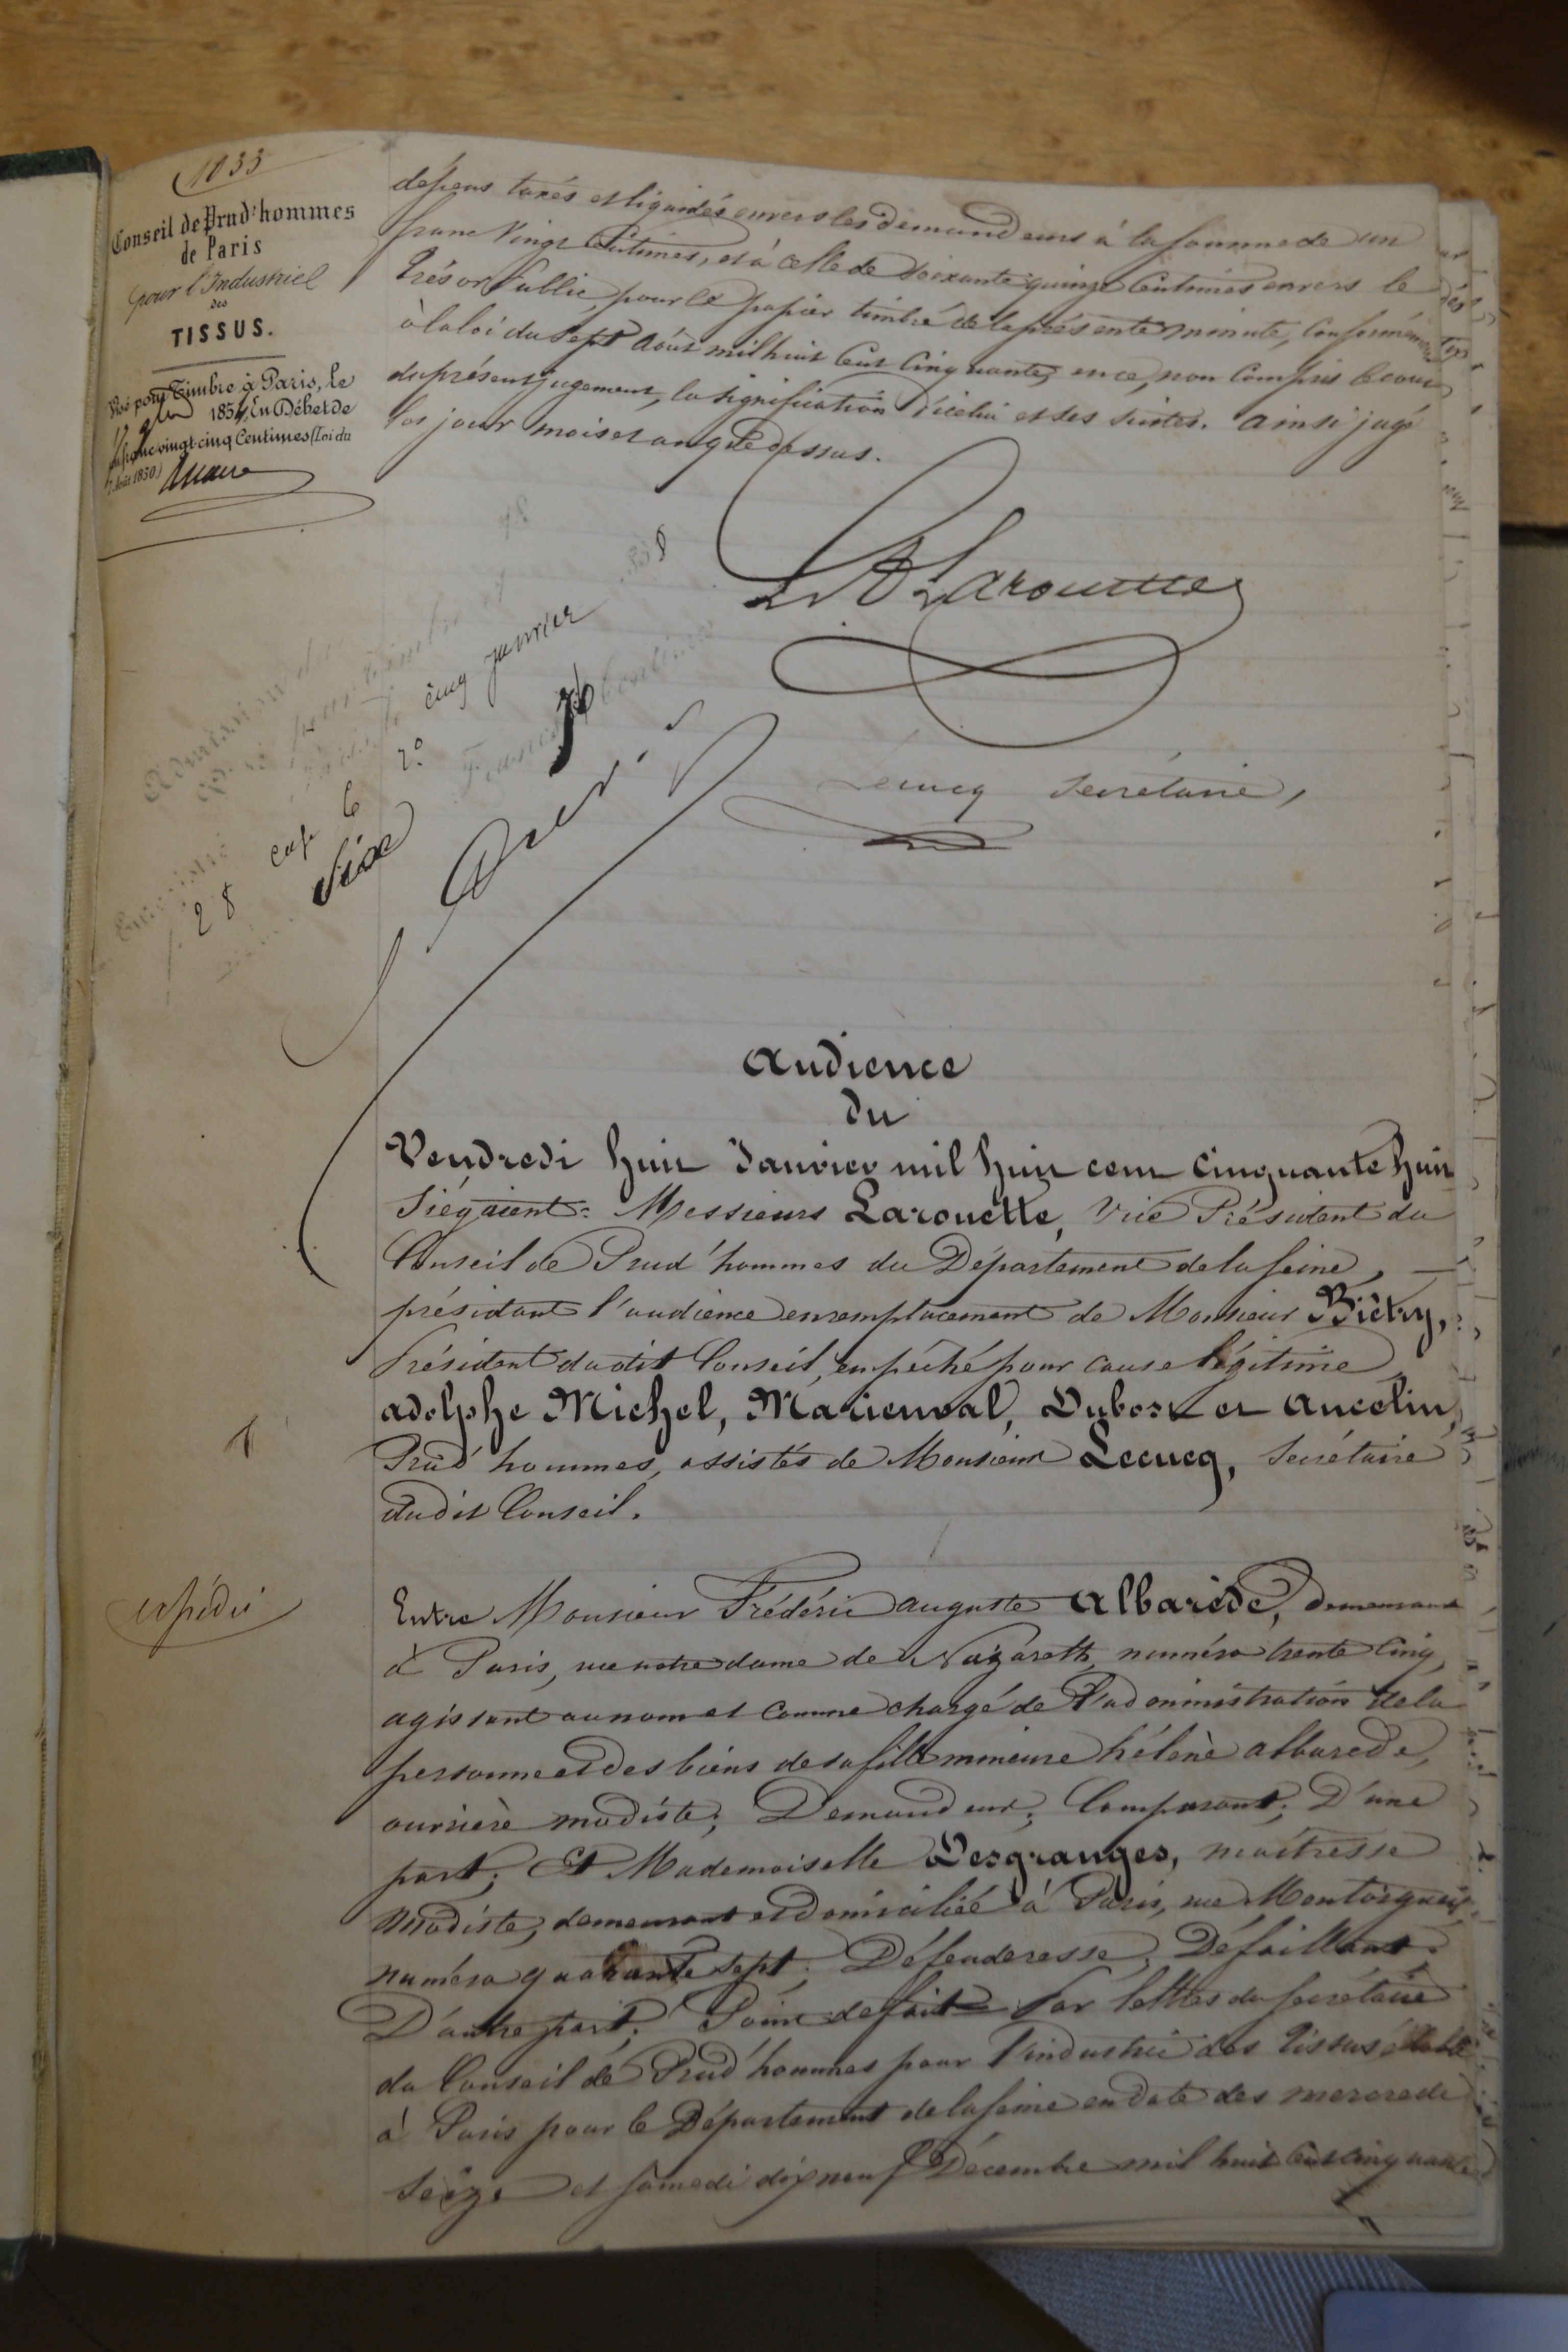 1033
Conseil de Prud'hommes
de Paris
pour l'Industriel
des
TISSUS.
Visé pour Timbre à Paris, le
185 En Débet de
vingt cinq Centimes (Loi du
Août 1850)
dépens taxés et liquidés envers les demandeurs à la somme de un
franc vingt Centimes, et à celle de soixante quinze Centimes envers le
Trésor Public, pour le papier timbré de la présente minute, conformément
à la loi du Sept Août mil huit Cent Cinquante, en ce, non Compris le cout
du présent jugement, la signification d'icelui et ses suites. Ainsi jugé
les jour mois et an que dessus.
Larouette
Lecucq secrétaire,
cinq janvier
28
Audience
du
Vendredi huit Janvier mil huit cent cinquante huit
Siégaient: Messieurs Larouette, Vice Président du
Conseil de Prud'hommes du Département de la seine,
présidant l'audience en remplacement de Monsieur Biétry,
Président dudit Conseil, empêché pour cause légitime
Adolphe Michel, Marienval, Dubost et Ancelin,
Prud'hommes, assistés de Monsieur Lecucq, Secrétaire
dudit Conseil.
expédié
Entre Monsieur Frédéric auguste Albarède, demeurant
à Paris, rue notre dame de Nazareth, numéro trente cinq,
agissant au nom et comme chargé de l'administration de la
personne et des biens de sa fille mineure hélène albarede,
ouvrière modiste; Demandeur; Comparant; D'une
part; Et Mademoiselle Desgranges, maîtresse
modiste, demeurant et domiciliée à Paris, rue Montorgueil,
numéro quarante sept; Défenderesse; Défaillant.
D'autre part; Point de fait - Par lettres du secrétaire
du Conseil de Prud'hommes pour l'industrie des tissus établi
à Paris pour le Département de la seine en date des mercredi
seize et samedi dix neuf Décembre mil huit cent cinquante